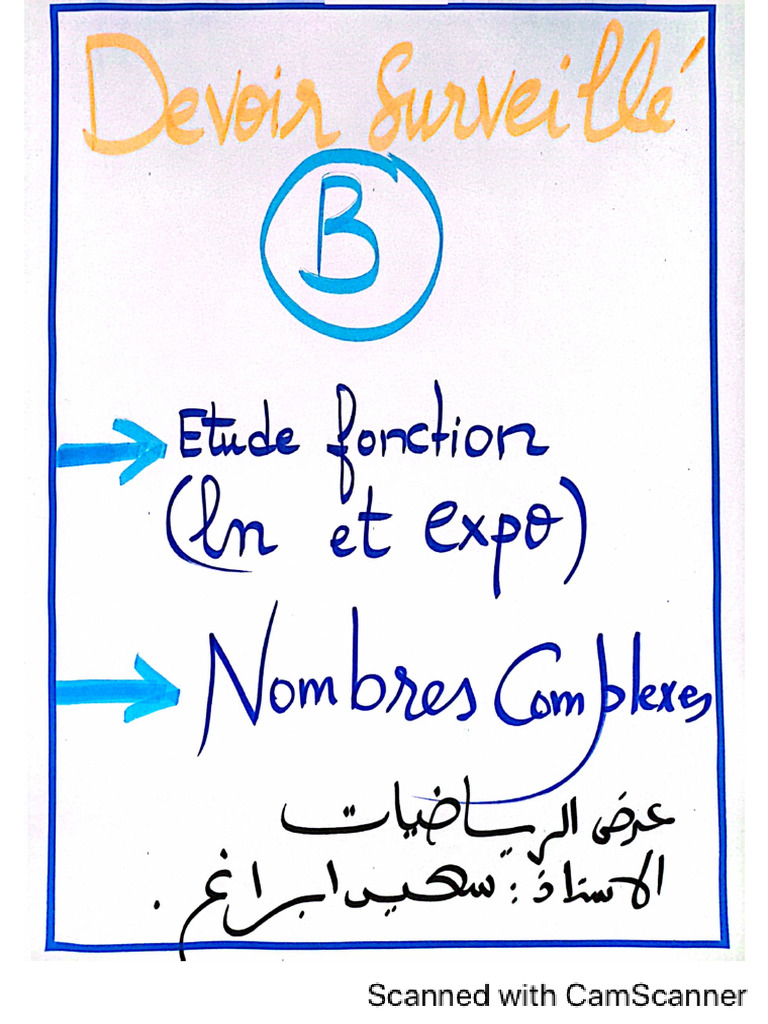 Devoir Surveillé
B
Etude fonction
(ln et expo)
Nombres Complexes
عرض الرياضيات
الاستاذ : سهيد ابراغ
Scanned with CamScanner